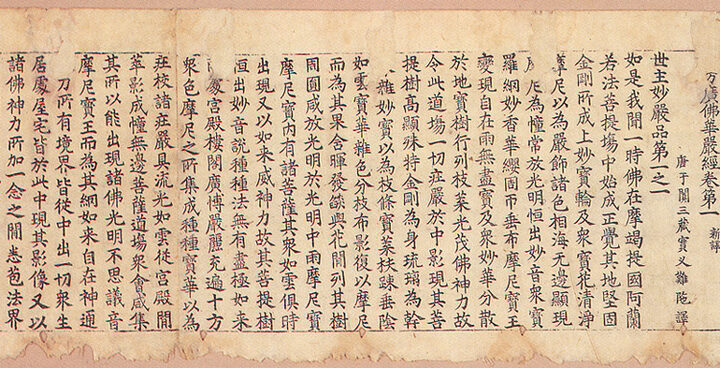 方廣佛華嚴經卷第一 新譯
唐于闐三藏實叉難陁譯
世主妙嚴品第一之一
如是我聞一時佛在摩竭提國阿蘭
若法菩提場中始成正覺其地堅固
金剛所成上妙寶輪及衆寶花清淨
摩尼以為嚴飾諸色相海無邊顯現
尼為幢常放光明恒出妙音衆寶
羅網妙香華纓周帀垂布摩尼寶王
變現自在雨無盡寶及衆妙華分散
於地寶樹行列枝葉光茂佛神力故
令此道場一切莊嚴於中影現其菩
提樹高顯殊特金剛為身琉璃為幹
雜妙寶以為枝條寶葉扶踈垂陰
如雲寶華雜色分枝布影復以摩尼
而為其果含暉發焰與花間列其樹
周圓咸放光明於光明中雨摩尼寶
摩尼寶內有諸菩薩其衆如雲俱時
出現又以如来威神力故其菩提樹
恒出妙音說種種法無有盡極如来
處宮殿樓閣廣博嚴麗充遍十方
衆色摩尼之所集成種種寶華以為
莊校諸莊嚴具流光如雲從宮殿間
萃影成幢無邊菩薩道場衆會咸集
其所以能出現諸佛光明不思議音
摩尼寶王而為其網如来自在神通
力所有境界皆從中出一切衆生
居處屋宅皆於此中現其影像又以
諸佛神力所加一念之間悉苞法界